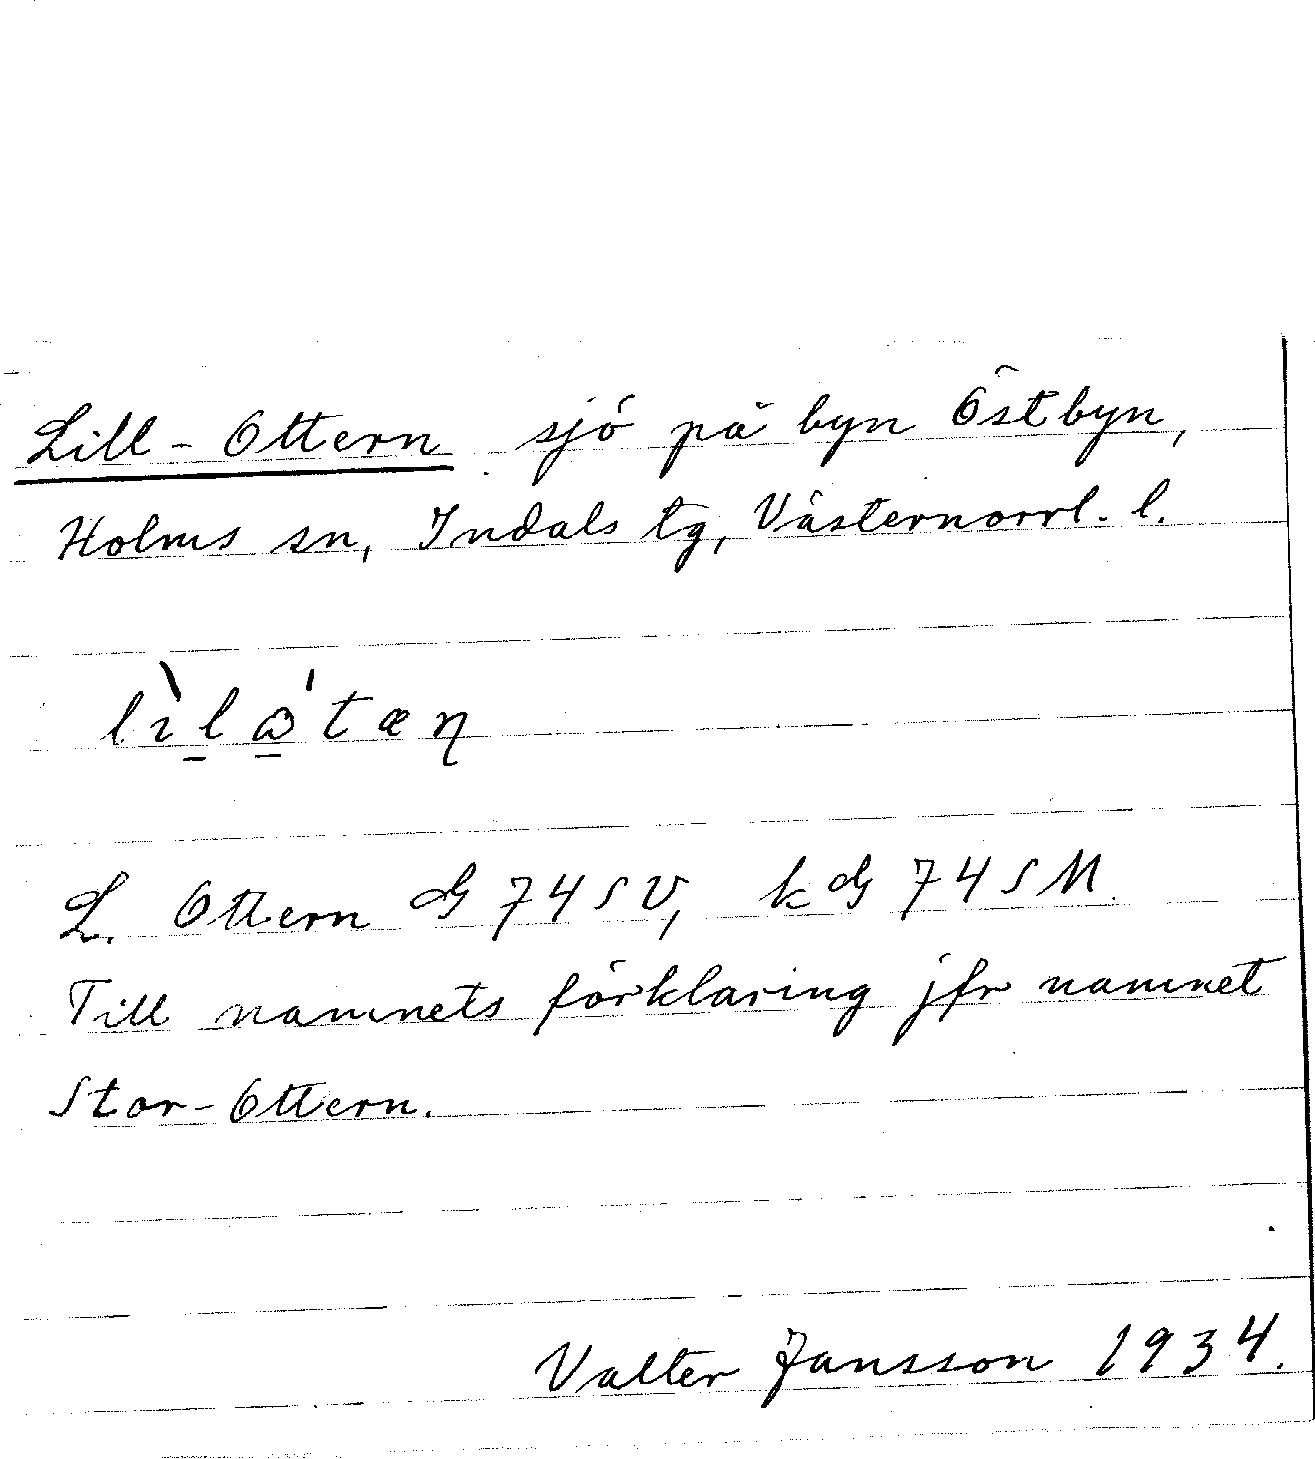 Lill-Ottern sjö på byn Östbyn,
Holms sn, Indals tg, Västernorrl. l.
L. Ottern G 74 SV, k G 74 S M.
Till namnets förklaring jfr namnet
Stor-Ottern.
Valter Jansson 1934.